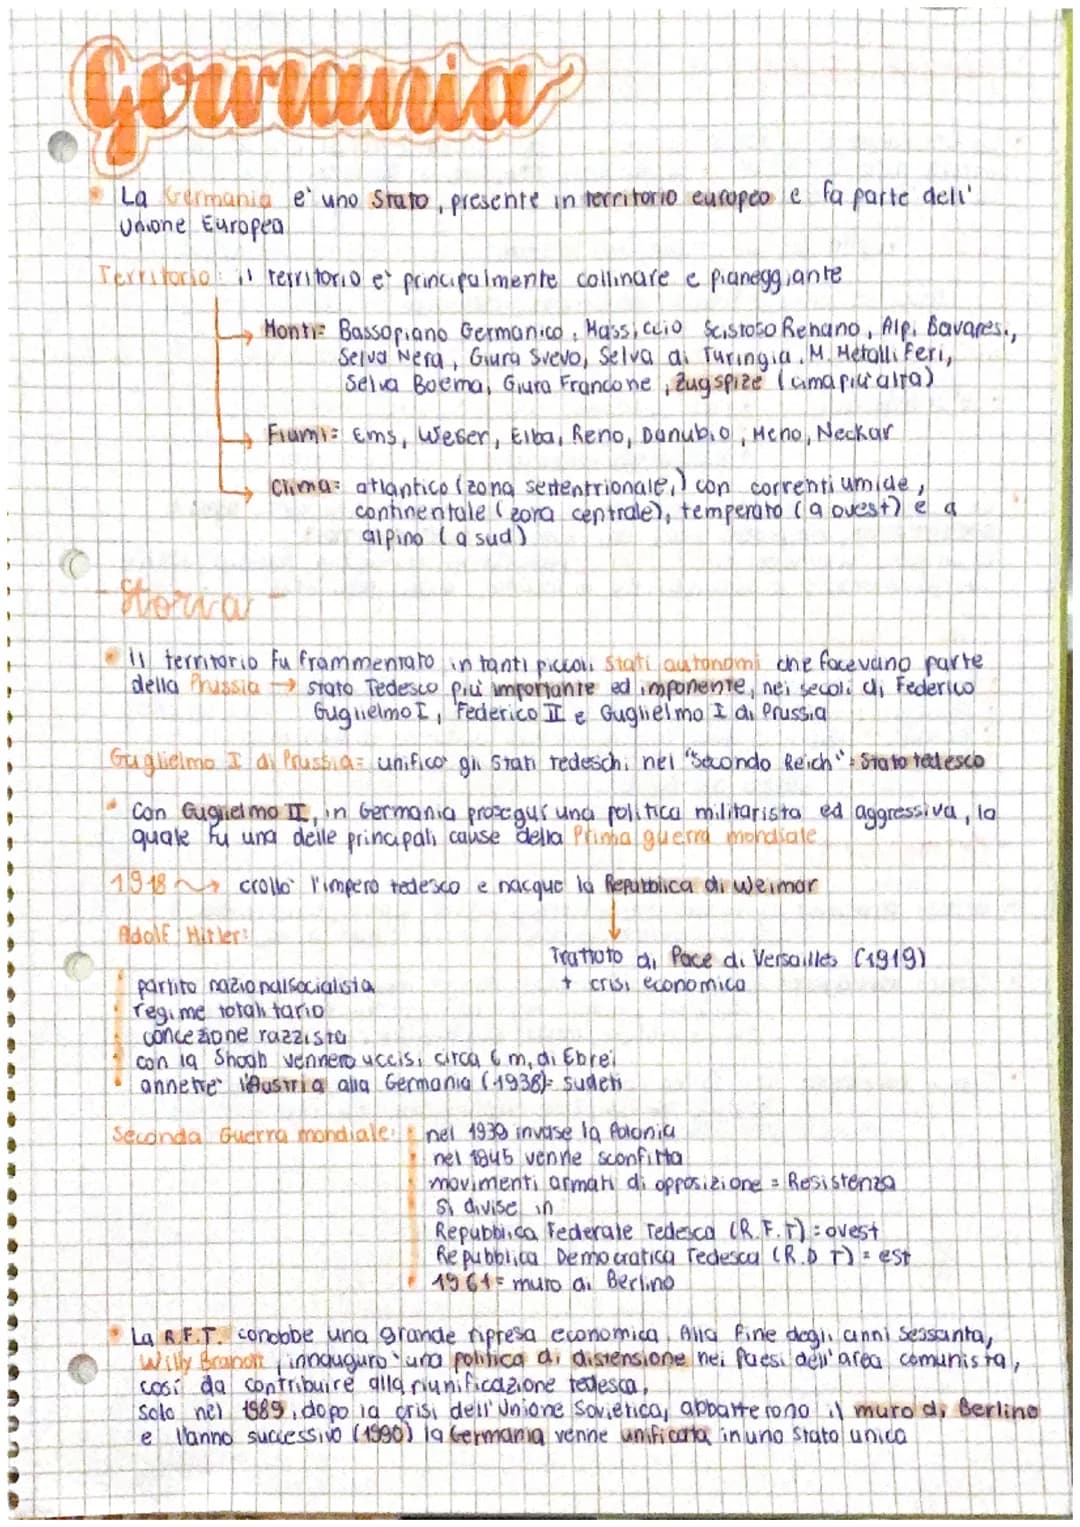 Germania
La Germania e' uno Stato, presente in territorio europeo e fa parte dell'
Unione Europea
Territorio: il territorio e' principalmente collinare e pianeggiante
Monti= Bassopiano Germanico, Massiccio Scistoso Renano, Alpi Bavaresi,
Selva Nera, Giura Svevo, Selva di Turingia, M. Metalliferi,
Selva Boema, Giura Francone, Zugspize (cima più alta)
Fiumi= Ems, Weser, Elba, Reno, Danubio, Meno, Neckar
Clima= atlantico (zona settentrionale,) con correnti umide,
continentale (zona centrale), temperato (a ovest) e a
alpino (a sud)
- Storia -
Il territorio fu frammentato in tanti piccoli Stati autonomi che facevano parte
della Prussia → stato Tedesco più importante ed imponente, nei secoli di Federico
Guglielmo I, Federico II e Guglielmo I di Prussia
Guglielmo I di Prussia= unifico' gli Stati tedeschi nel "Secondo Reich": Stato tedesco
Con Guglielmo II, in Germania proseguì una politica militarista ed aggressiva, la
quale fu una delle principali cause della Prima guerra mondiale
1918 → crollo' l'impero tedesco e nacque la Repubblica di Weimar
Adolf Hitler:
Trattato di Pace di Versailles (1919)
+ crisi economica
partito nazionalsocialista
regime totalitario
concezione razzista
con la Shoah vennero uccisi circa 6 m. di Ebrei
annette' l'Austria alla Germania (1938)= sudeti
Seconda Guerra mondiale:
nel 1939 invase la Polonia
nel 1945 venne sconfitta
movimenti armati di opposizione = Resistenza
Si divise in
Repubblica Federale Tedesca (R.F.T) = ovest
Repubblica Democratica Tedesca (R.D.T) = est
1961= muro di Berlino
La R.F.T. conobbe una grande ripresa economica. Alla fine degli anni Sessanta,
Willy Brandt innauguro' una politica di distensione nei Paesi dell'area comunista,
così da contribuire alla riunificazione tedesca,
solo nel 1989, dopo la crisi dell'Unione Sovietica, abbatterono il muro di Berlino
e l'anno successivo (1990) la Germania venne unificata in uno Stato unico